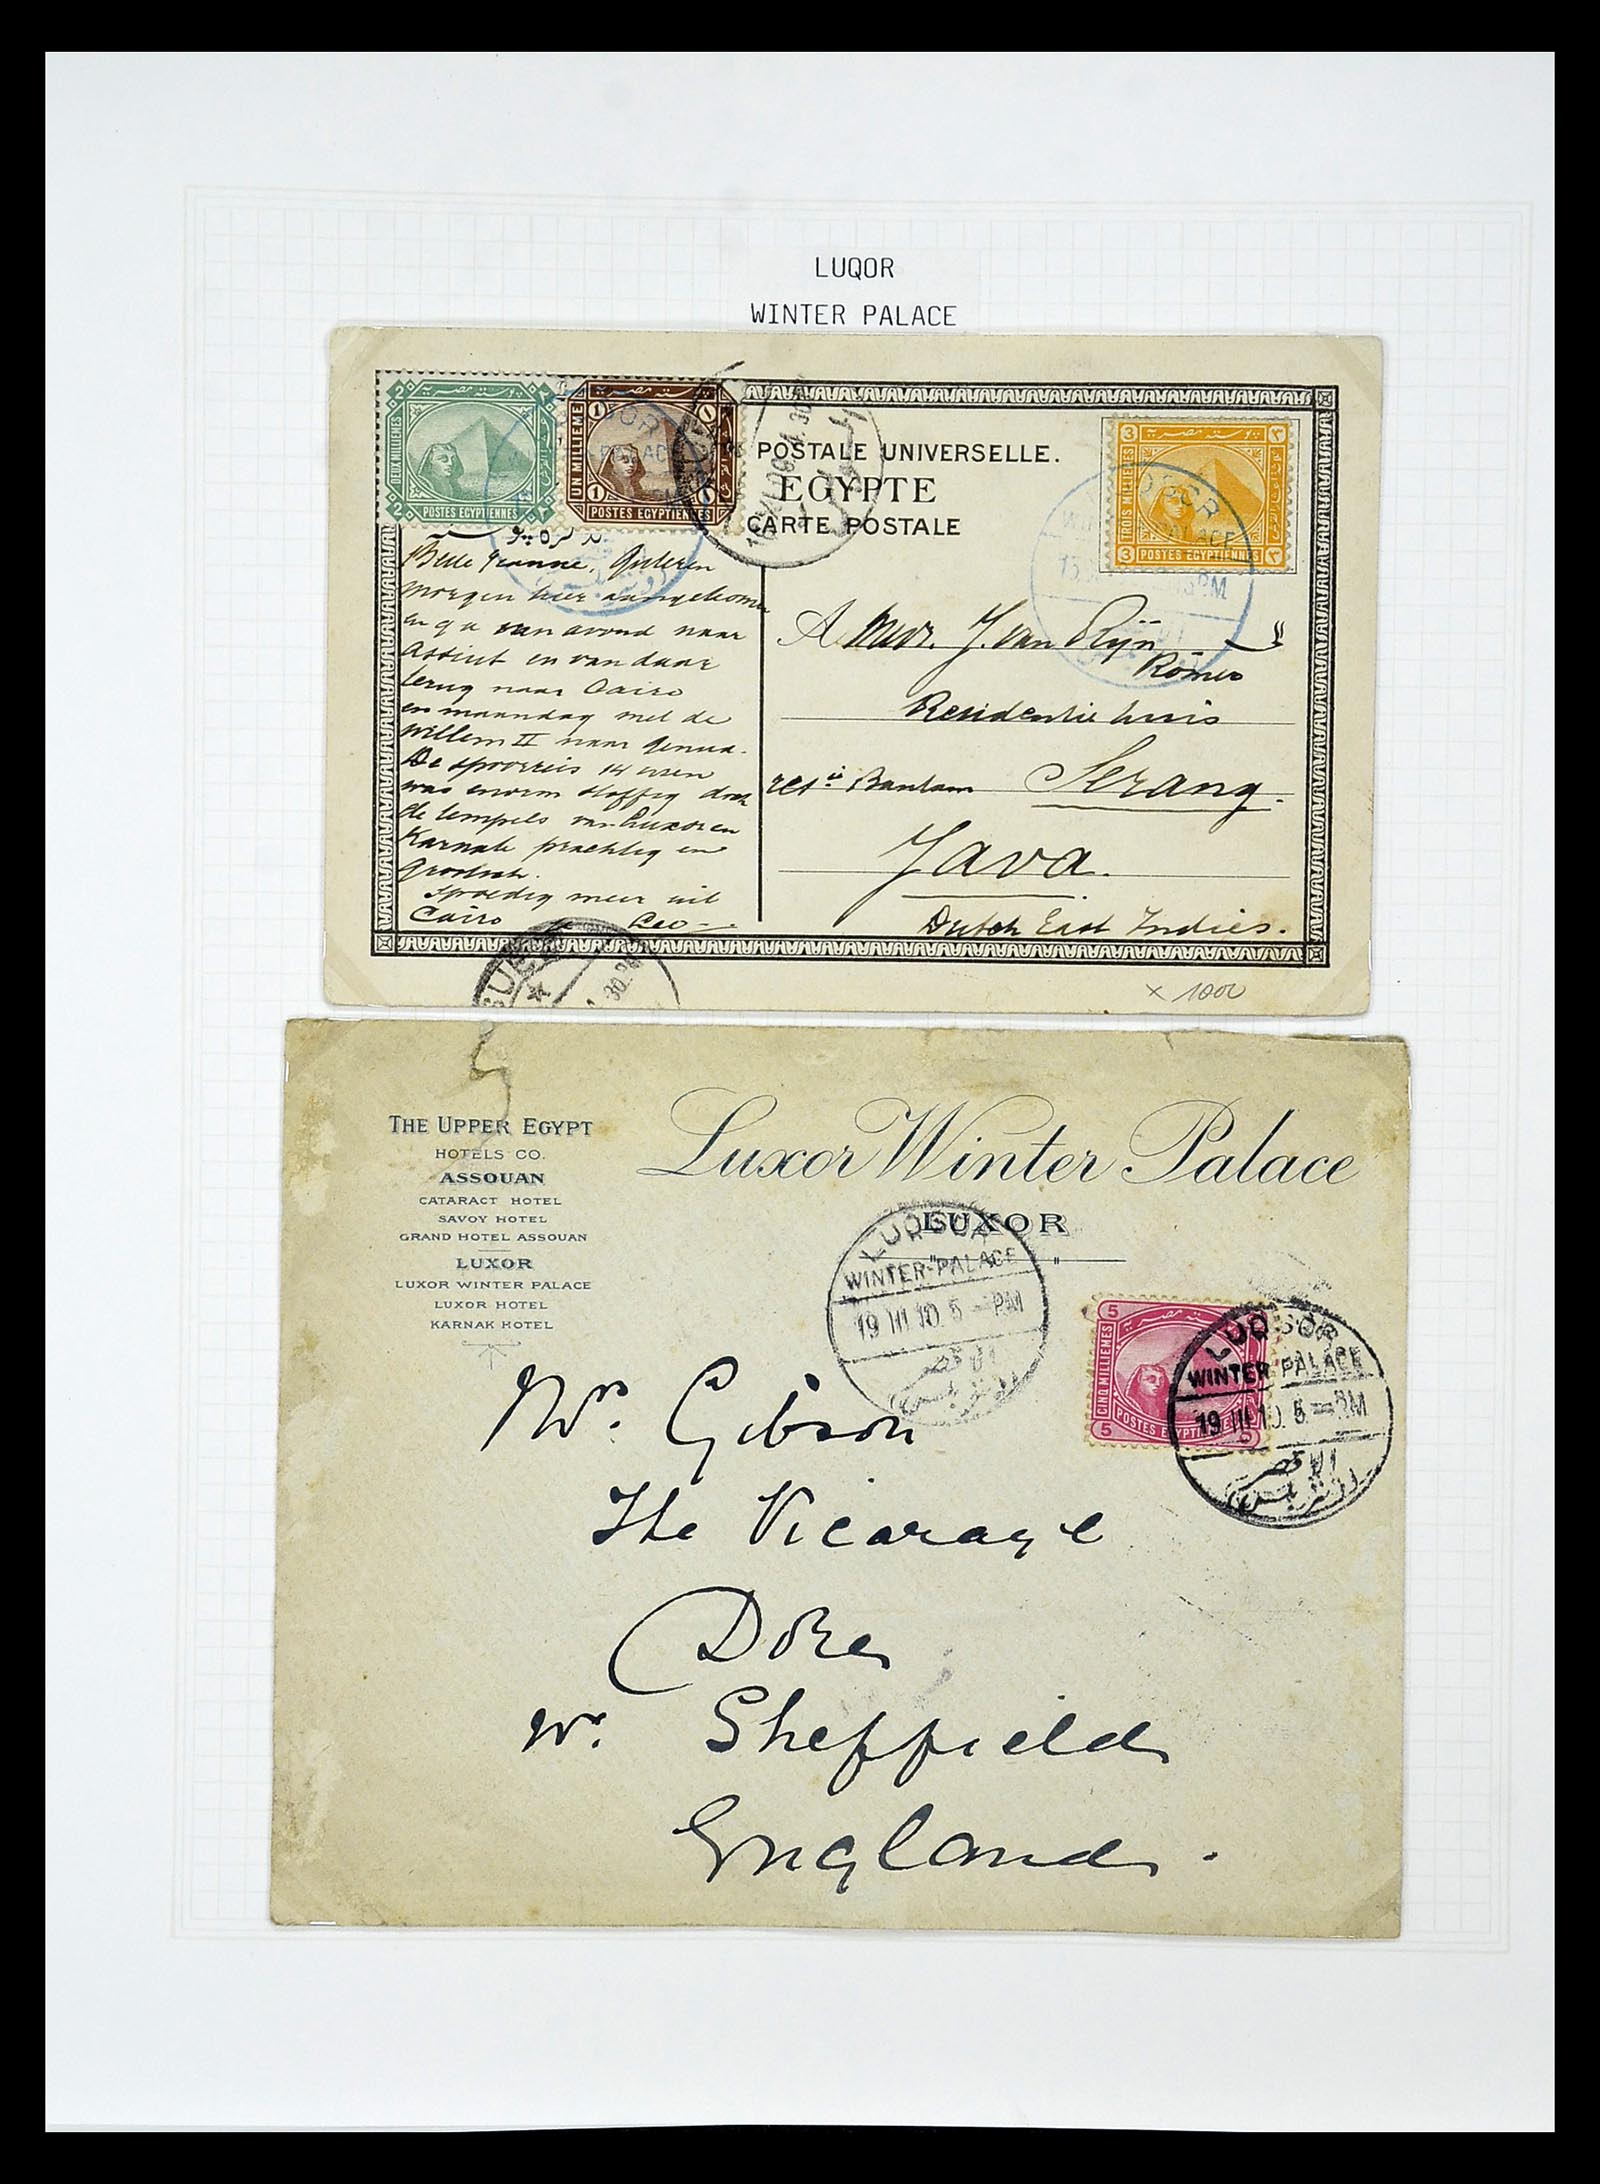 LUQOR
WINTER PALACE
2
DEUX MILLIEMES
2
POSTES EGYPTIENNES
1
UN MILLIEME
1
POSTES EGYPTIENNES
POSTALE UNIVERSELLE.
EGYPTE
CARTE POSTALE
3
TROIS MILLIEMES
3
POSTES EGYPTIENNES
Gisteren
morgen hier aangekomen
en ga van avond naar
Assiut en van daar
terug naar Cairo
en maandag met de
Willem II naar Genua.
De spoorreis 14 uren
was enorm stoffig doch
de tempels van Luxor en
Karnak prachtig en
grootsch.
Spoedig meer uit
Cairo Leo
A Mevr. J. van Rijn
Römer
Residentie huis
resie Bantam Serang.
Java.
Dutch East Indies.
SUEZ
x 1000
THE UPPER EGYPT
HOTELS CO.
ASSOUAN
CATARACT HOTEL
SAVOY HOTEL
GRAND HOTEL ASSOUAN
LUXOR
LUXOR WINTER PALACE
LUXOR HOTEL
KARNAK HOTEL
Luxor Winter Palace
LUXOR
LUQSOR
WINTER-PALACE
19 III 10. 5 - PM
الاقصر
5
CINQ MILLIEMES
5
POSTES EGYPTIENNES
LUQSOR
WINTER-PALACE
19 III 10. 5 - PM
الاقصر
Mr. Gibson
The Vicarage
Dore
Nr. Sheffield
England.